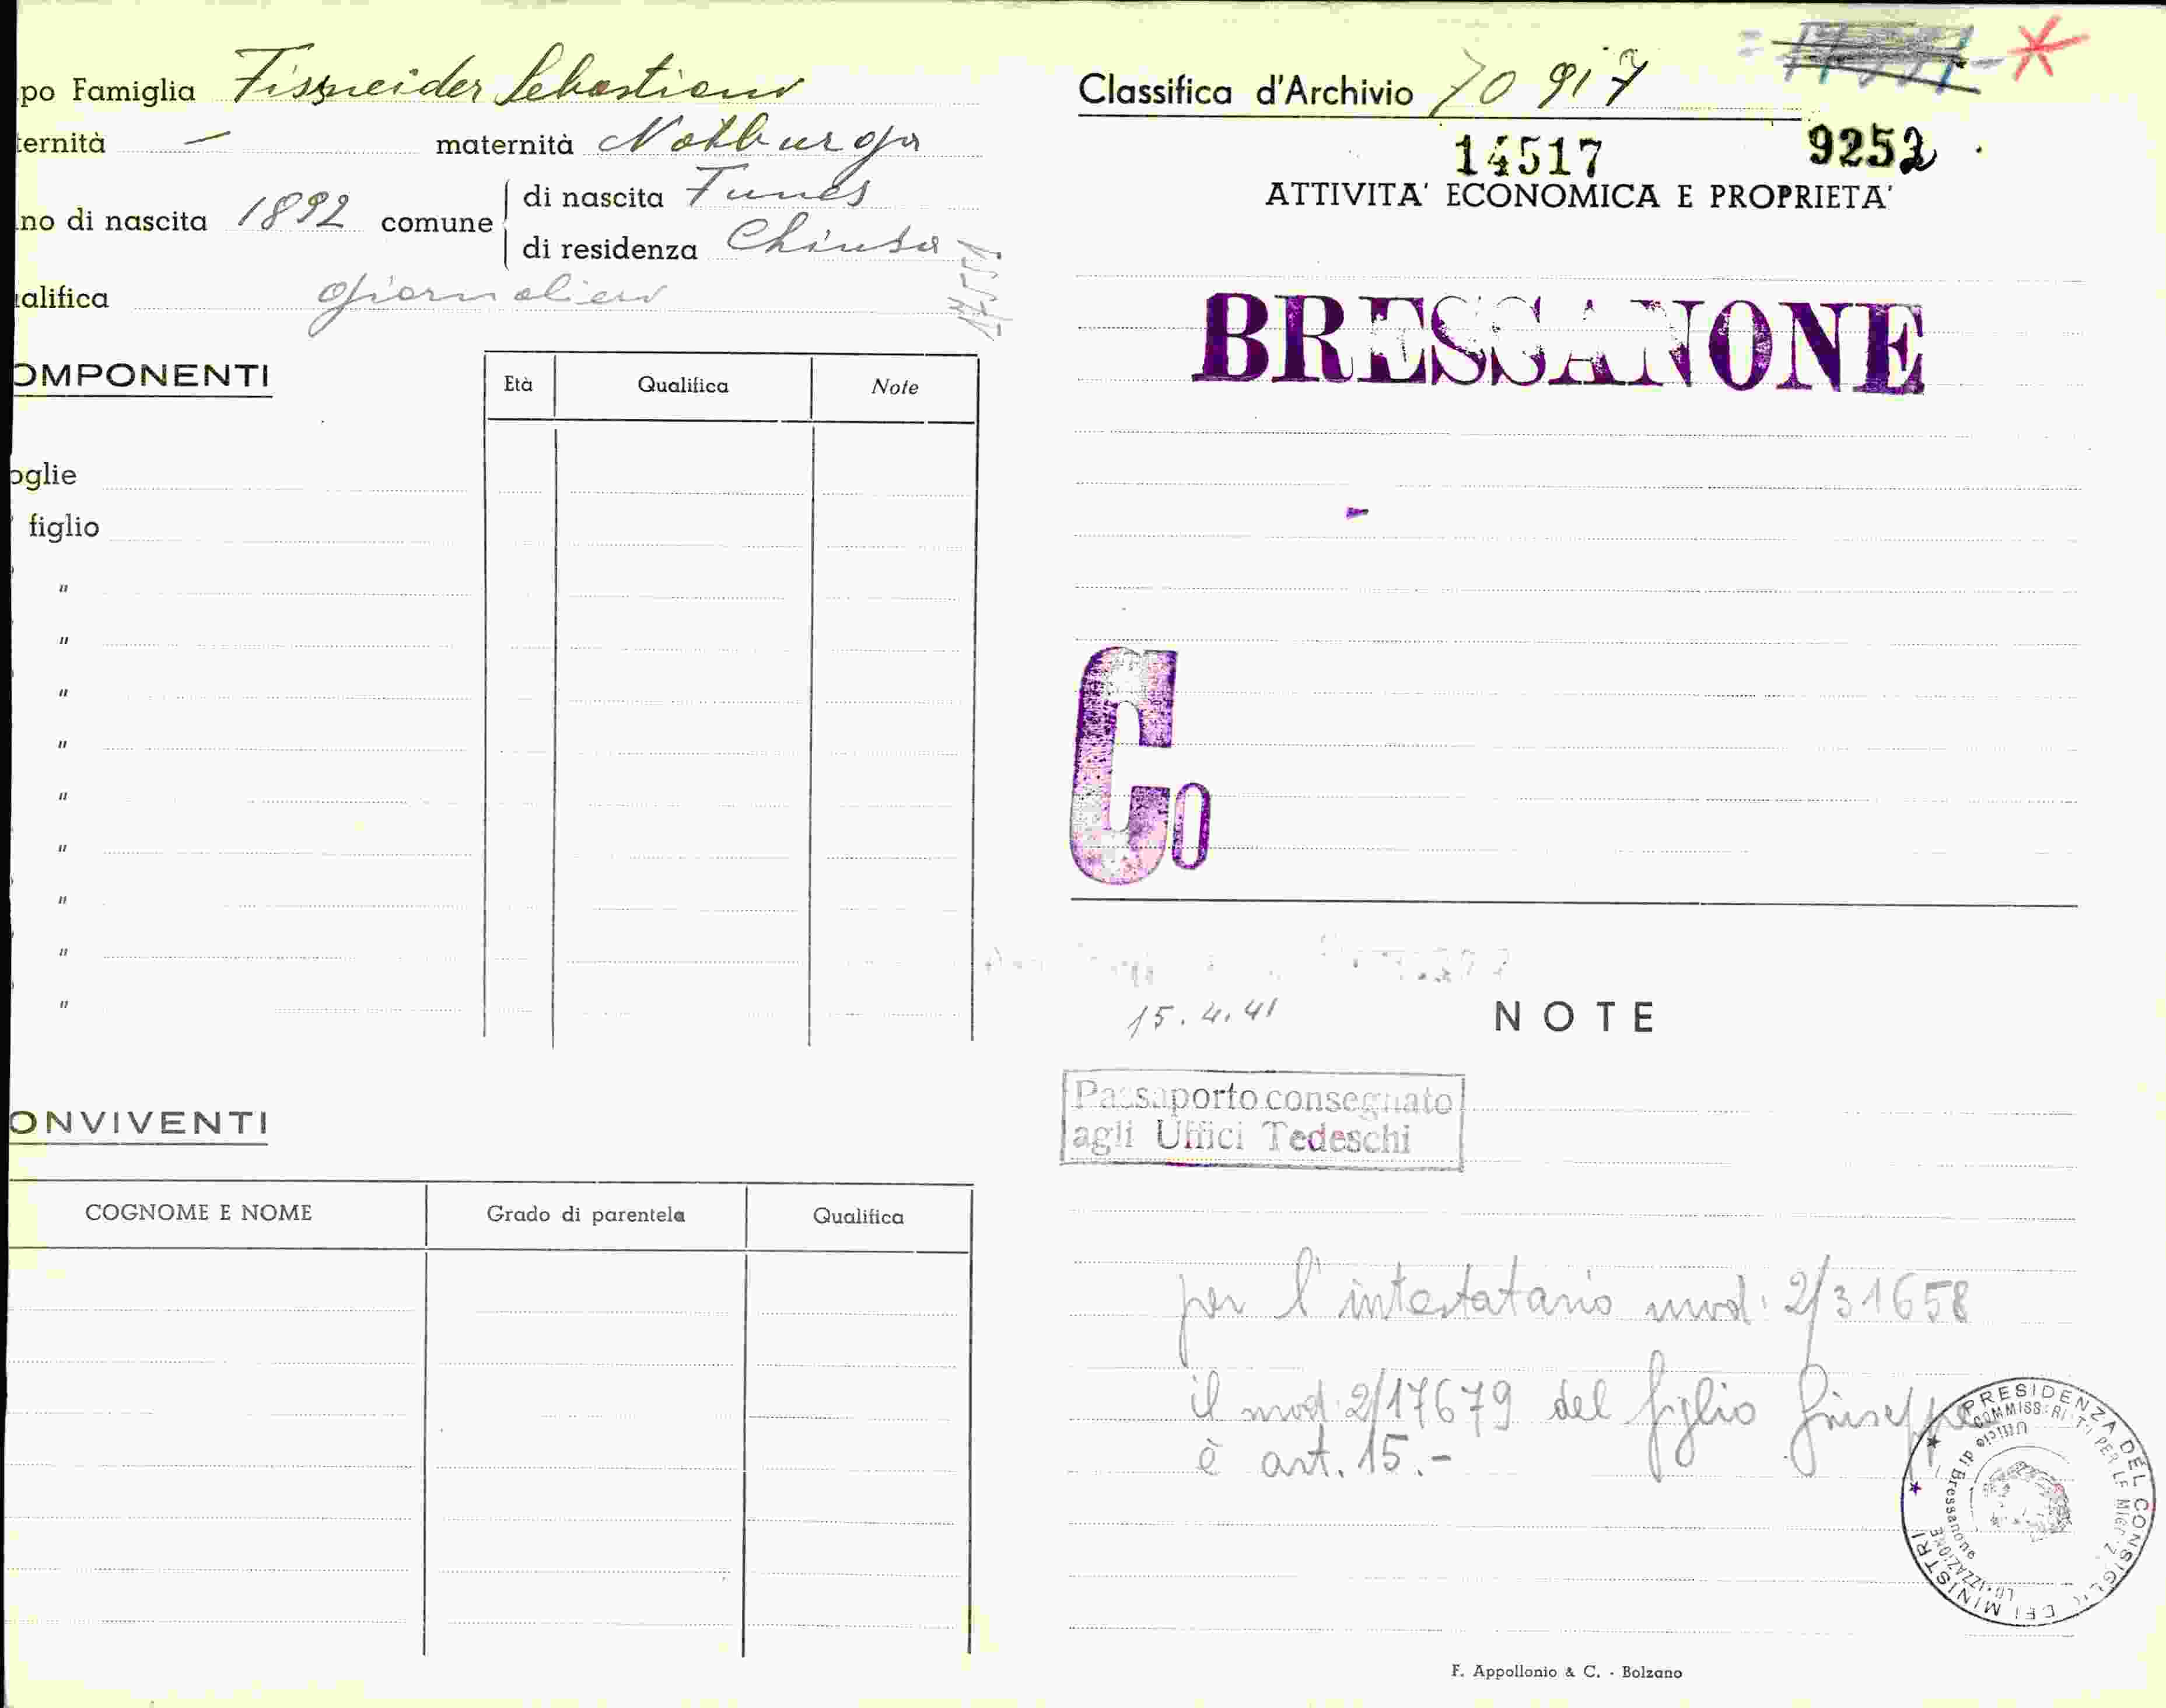 po Famiglia Fissneider Sebastiano
ternità — maternità Notburga
no di nascita 1892 comune di nascita Funes
di residenza Chiusa
alifica giornaliero
OMPONENTI
Età Qualifica Note
oglie
figlio
"
"
"
"
"
"
"
"
"
ONVIVENTI
COGNOME E NOME Grado di parentela Qualifica
Classifica d'Archivio 70917
14517 9252
ATTIVITA' ECONOMICA E PROPRIETA'
BRESSANONE
Co
15.4.41 NOTE
Passaporto consegnato
agli Uffici Tedeschi
per l'intestatario mod. 2/31658
il mod. 2/17679 del figlio Giuseppe
è art. 15.-
PRESIDENZA DEL CONSIGLIO DEI MINISTRI
Ufficio di Bressanone
F. Appollonio & C. - Bolzano